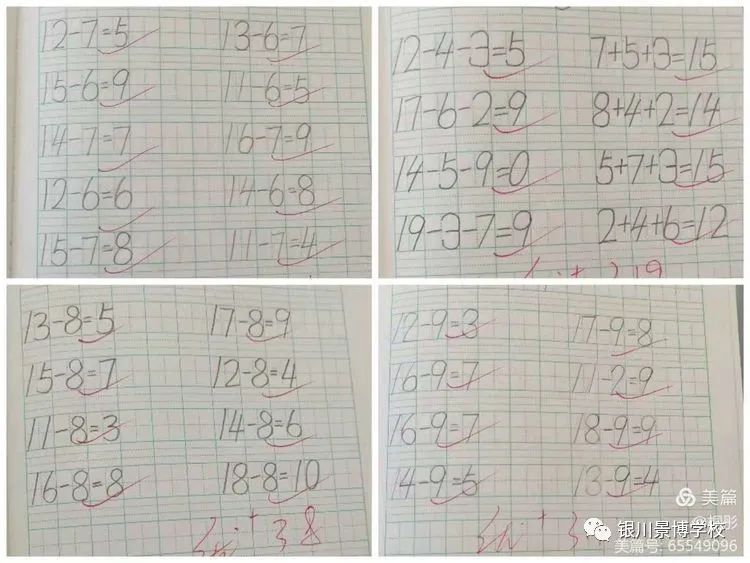 12-7=5 13-6=7
15-6=9 11-6=5
14-7=7 16-7=9
12-6=6 14-6=8
15-7=8 11-7=4
12-4-3=5 7+5+3=15
17-6-2=9 8+4+2=14
14-5-9=0 5+7+3=15
19-3-7=9 2+4+6=12
13-8=5 17-8=9
15-8=7 12-8=4
11-8=3 14-8=6
16-8=8 18-8=10
12-9=3 17-9=8
16-9=7 11-2=9
16-9=7 18-9=9
14-9=5 13-9=4
美篇
银川景博学校
美篇号: 65549096